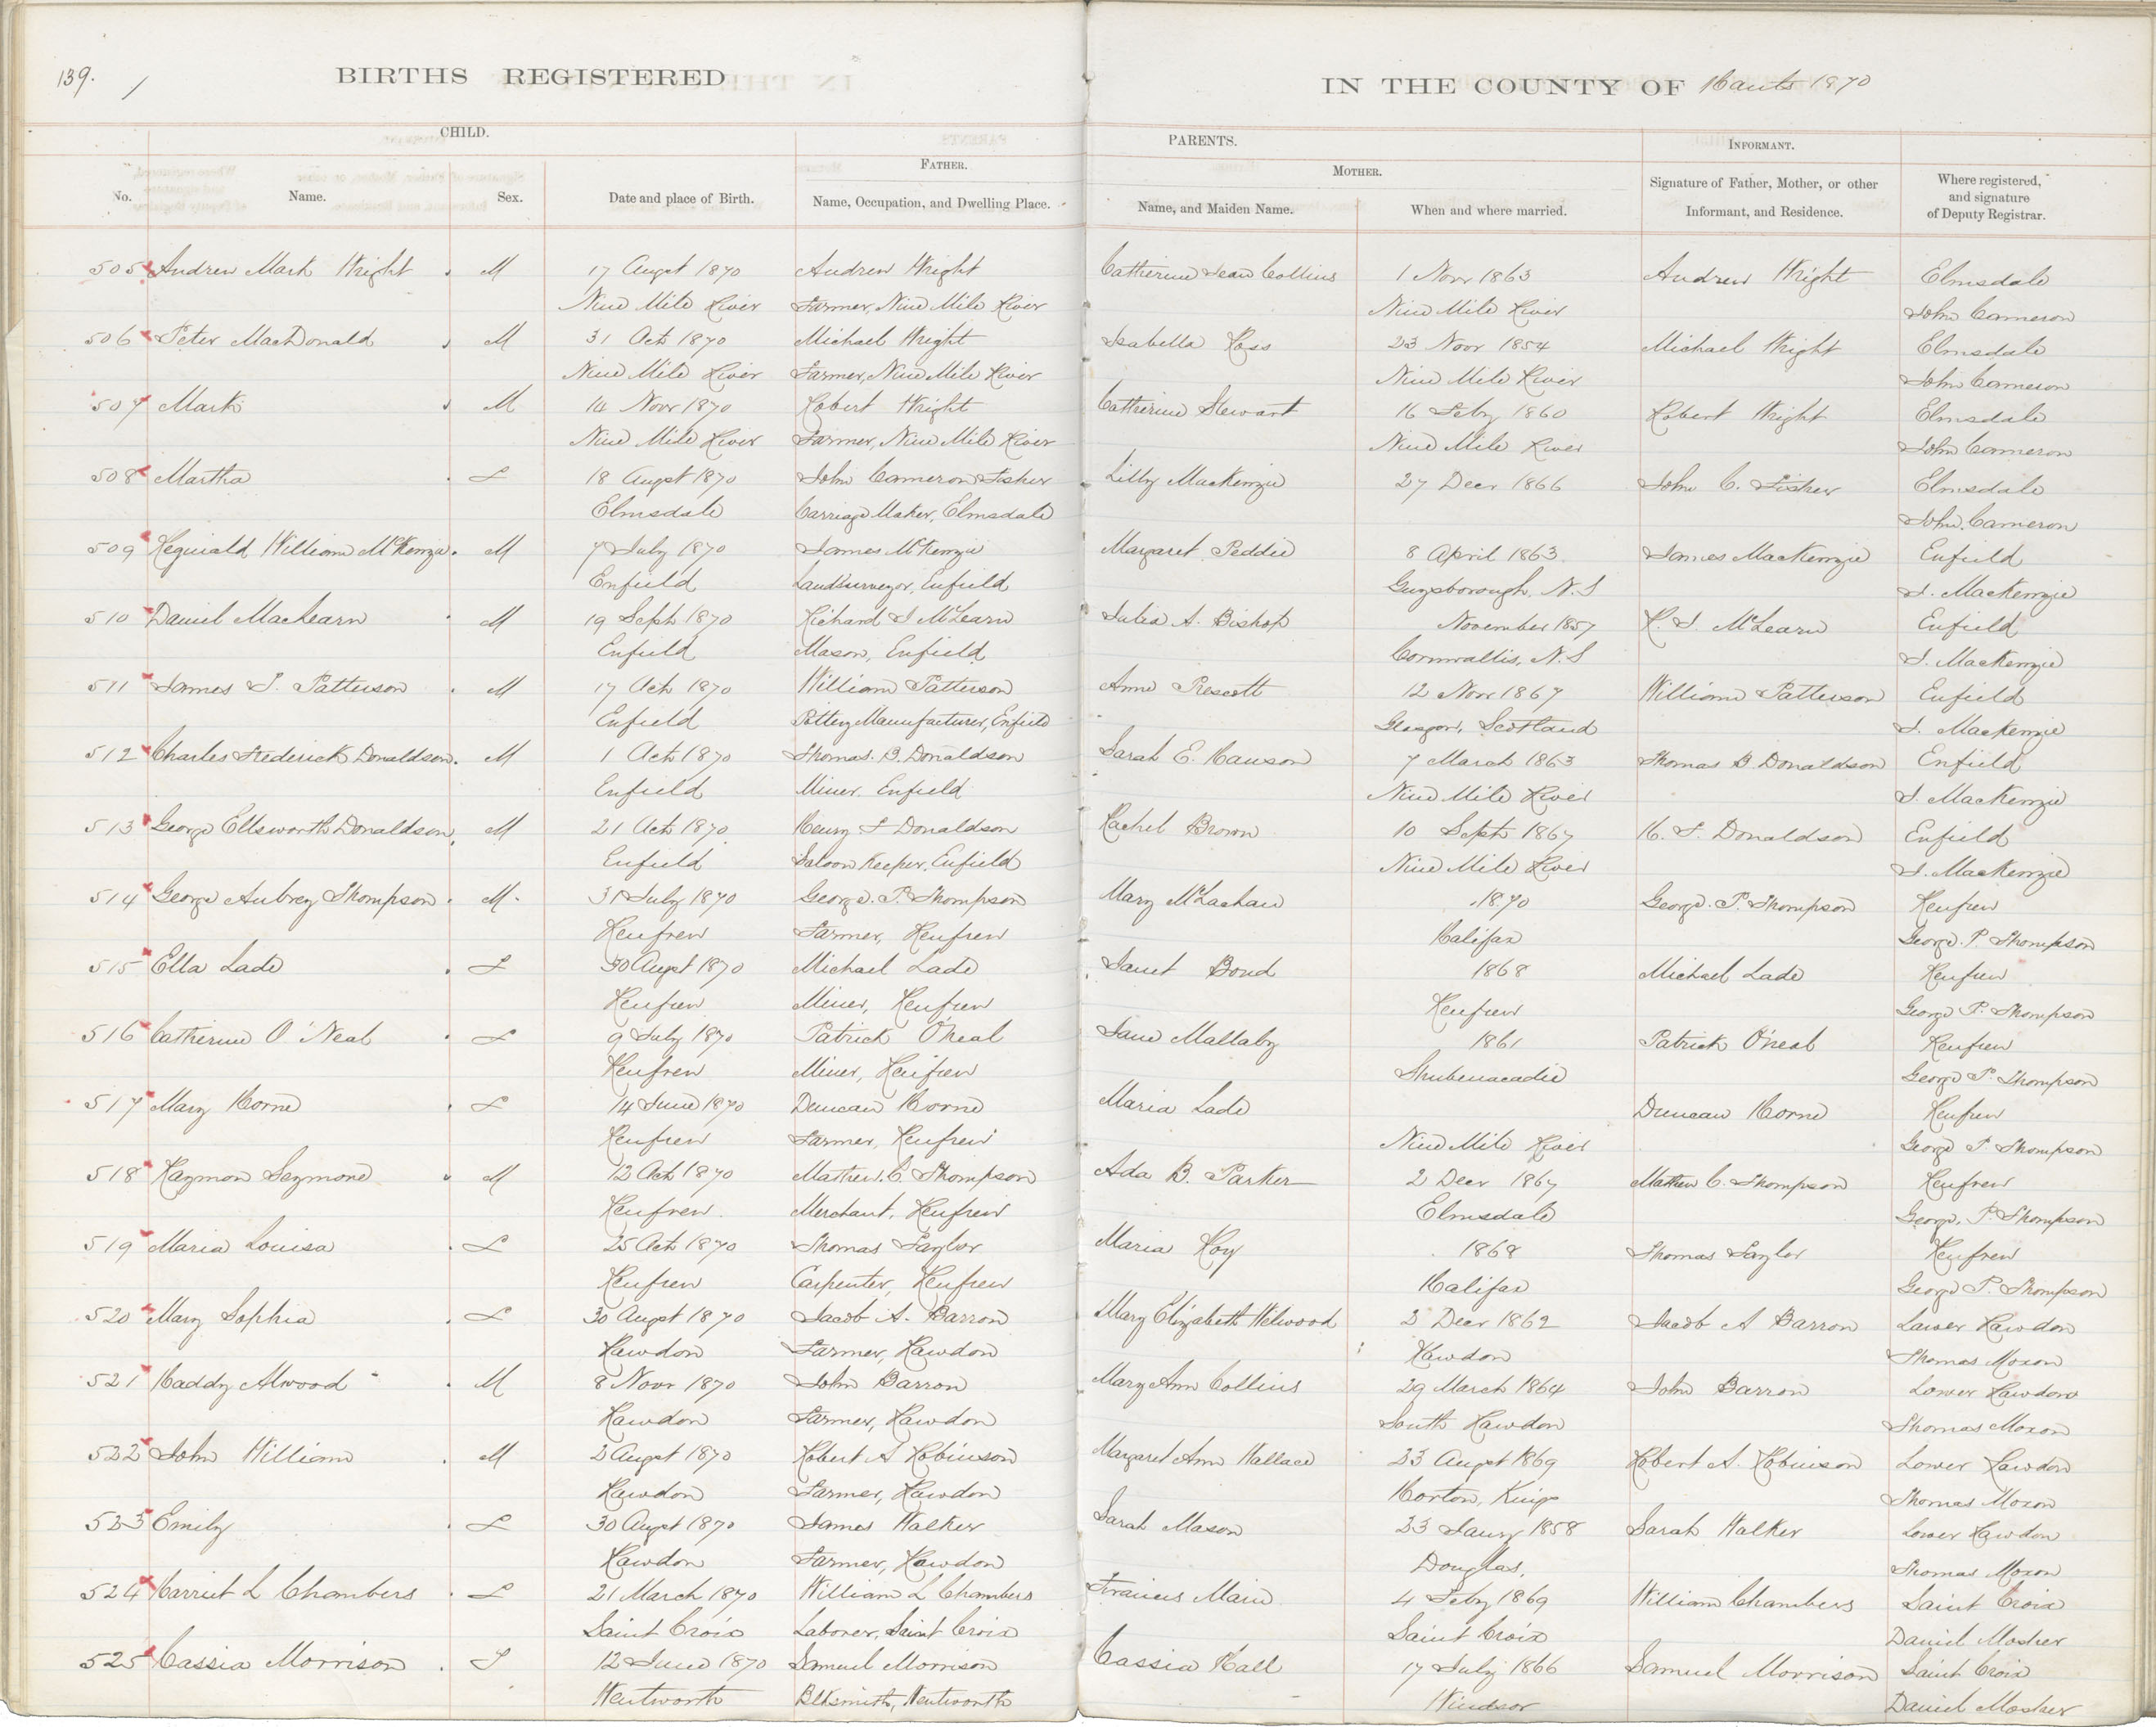 139.
BIRTHS REGISTERED IN THE COUNTY OF Hants 1870
CHILD. PARENTS. INFORMANT.
FATHER. MOTHER.
No. Name. Sex. Date and place of Birth. Name, Occupation, and Dwelling Place. Name, and Maiden Name. When and where married. Signature of Father, Mother, or other Informant, and Residence. Where registered, and signature of Deputy Registrar.
505 Andrew Mark Wright M 17 Augst 1870 Andrew Wright Catherine Jean Collins 1 Novr 1863 Andrew Wright Elmsdale
Nine Mile River Farmer, Nine Mile River Nine Mile River John Cameron
506 Peter MacDonald M 31 Oct 1870 Michael Wright Isabella Ross 23 Novr 1854 Michael Wright Elmsdale
Nine Mile River Farmer, Nine Mile River Nine Mile River John Cameron
507 Mark M 14 Novr 1870 Robert Wright Catherine Stewart 16 Feby 1860 Robert Wright Elmsdale
Nine Mile River Farmer, Nine Mile River Nine Mile River John Cameron
508 Martha F 18 Augst 1870 John Cameron Fisher Lilly MacKenzie 27 Decr 1866 John C. Fisher Elmsdale
Elmsdale Carriage Maker, Elmsdale John Cameron
509 Reginald William McKenzie M 7 July 1870 James McKenzie Margaret Peddie 8 April 1863 James MacKenzie Enfield
Enfield Land Surveyor, Enfield Guysborough, N.S J. MacKenzie
510 Daniel MacLearn M 19 Sept 1870 Richard J McLearn Julia A. Bishop November 1857 R. J. McLearn Enfield
Enfield Mason, Enfield Cornwallis, N.S J. MacKenzie
511 James P. Patterson M 17 Oct 1870 William Patterson Anne Prescott 12 Novr 1867 William Patterson Enfield
Enfield Pottery Manufacturer, Enfield Glasgow, Scotland J. MacKenzie
512 Charles Frederick Donaldson M 1 Oct 1870 Thomas B. Donaldson Sarah E. Hanson 7 March 1863 Thomas B Donaldson Enfield
Enfield Miner, Enfield Nine Mile River J. MacKenzie
513 George Ellsworth Donaldson M 21 Oct 1870 Henry F Donaldson Rachel Brown 10 Sept 1867 H. F. Donaldson Enfield
Enfield Saloon Keeper, Enfield Nine Mile River J. MacKenzie
514 George Aubrey Thompson M 31 July 1870 George P. Thompson Mary McLachan 1870 George P. Thompson Renfrew
Renfrew Farmer, Renfrew Halifax George P. Thompson
515 Ella Lade F 30 Augst 1870 Michael Lade Janet Bond 1868 Michael Lade Renfrew
Renfrew Miner, Renfrew Renfrew George P. Thompson
516 Catherine O'Neal F 9 July 1870 Patrick O'neal Jane Mallaby 1861 Patrick O'neal Renfrew
Renfrew Miner, Renfrew Shubenacadie George P. Thompson
517 Mary Horne F 14 June 1870 Duncan Horne Maria Lade Duncan Horne Renfrew
Renfrew Farmer, Renfrew Nine Mile River George P Thompson
518 Raymon Seymore M 12 Oct 1870 Mathew C. Thompson Ada B. Parker 2 Decr 1867 Mathew C. Thompson Renfrew
Renfrew Merchant, Renfrew Elmsdale George P. Thompson
519 Maria Louisa F 25 Oct 1870 Thomas Taylor Maria Hoy 1868 Thomas Taylor Renfrew
Renfrew Carpenter, Renfrew Halifax George P. Thompson
520 Mary Sophia F 30 Augst 1870 Jacob A. Barron Mary Elizabeth Welwood 3 Decr 1862 Jacob A Barron Lower Rawdon
Rawdon Farmer, Rawdon Rawdon Thomas Moxon
521 Haddy Alwood M 8 Novr 1870 John Barron Mary Ann Collins 29 March 1864 John Barron Lower Rawdon
Rawdon Farmer, Rawdon South Rawdon Thomas Moxon
522 John William M 2 Augst 1870 Robert A Robinson Margaret Ann Wallace 23 Augst 1869 Robert A. Robinson Lower Rawdon
Rawdon Farmer, Rawdon Horton, Kings Thomas Moxon
523 Emily F 30 Augst 1870 James Walker Sarah Mason 23 Jany 1858 Sarah Walker Lower Rawdon
Rawdon Farmer, Rawdon Douglas, Thomas Moxon
524 Harriet L Chambers F 21 March 1870 William L Chambers Frances Main 4 Feby 1869 William Chambers Saint Croix
Saint Croix Laborer, Saint Croix Saint Croix Daniel Mosher
525 Cassia Morrison F 12 June 1870 Samuel Morrison Cassia Hall 17 July 1866 Samuel Morrison Saint Croix
Wentworth Blksmith, Wentworth Windsor Daniel Mosher